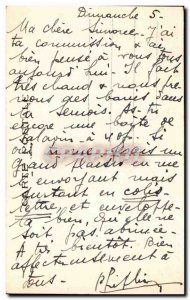 Dimanche 5.
Ma chère Simone. J'ai
ta commission & ai
bien pensé à vous tous
aujourd'hui. Il fait
très chaud & nous pre
nons des bains dans
la Semois. As-tu
encore une boîte de
à 40f. Si
un
grand plaisir en me
l'envoyant mais
surtout en colis-
lettre, et enveloppe
la bien, qu'elle ne
soit pas abimée.
A très bientôt. Bien
affectueusement à
tous.